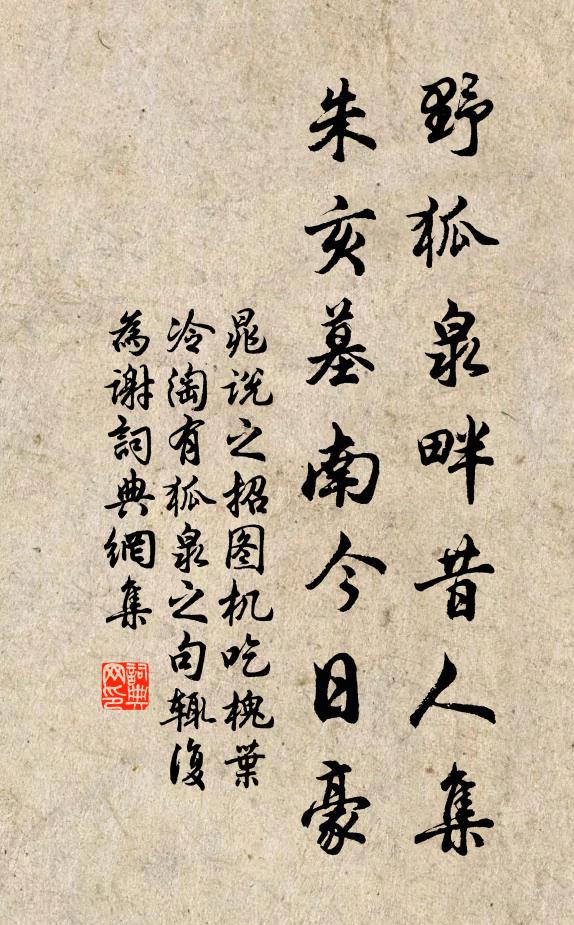 野狐泉畔昔人集
朱亥墓南今日豪
晁说之招图机吃槐葉
冷淘有狐泉之句辄復
為谢詞典網集
詞典
网印